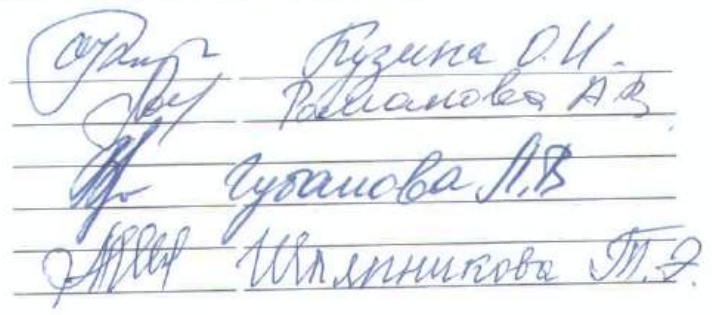 Кузина О.И.
Романова А.В.
Губанова Л.В
Шляпникова Т.Э.